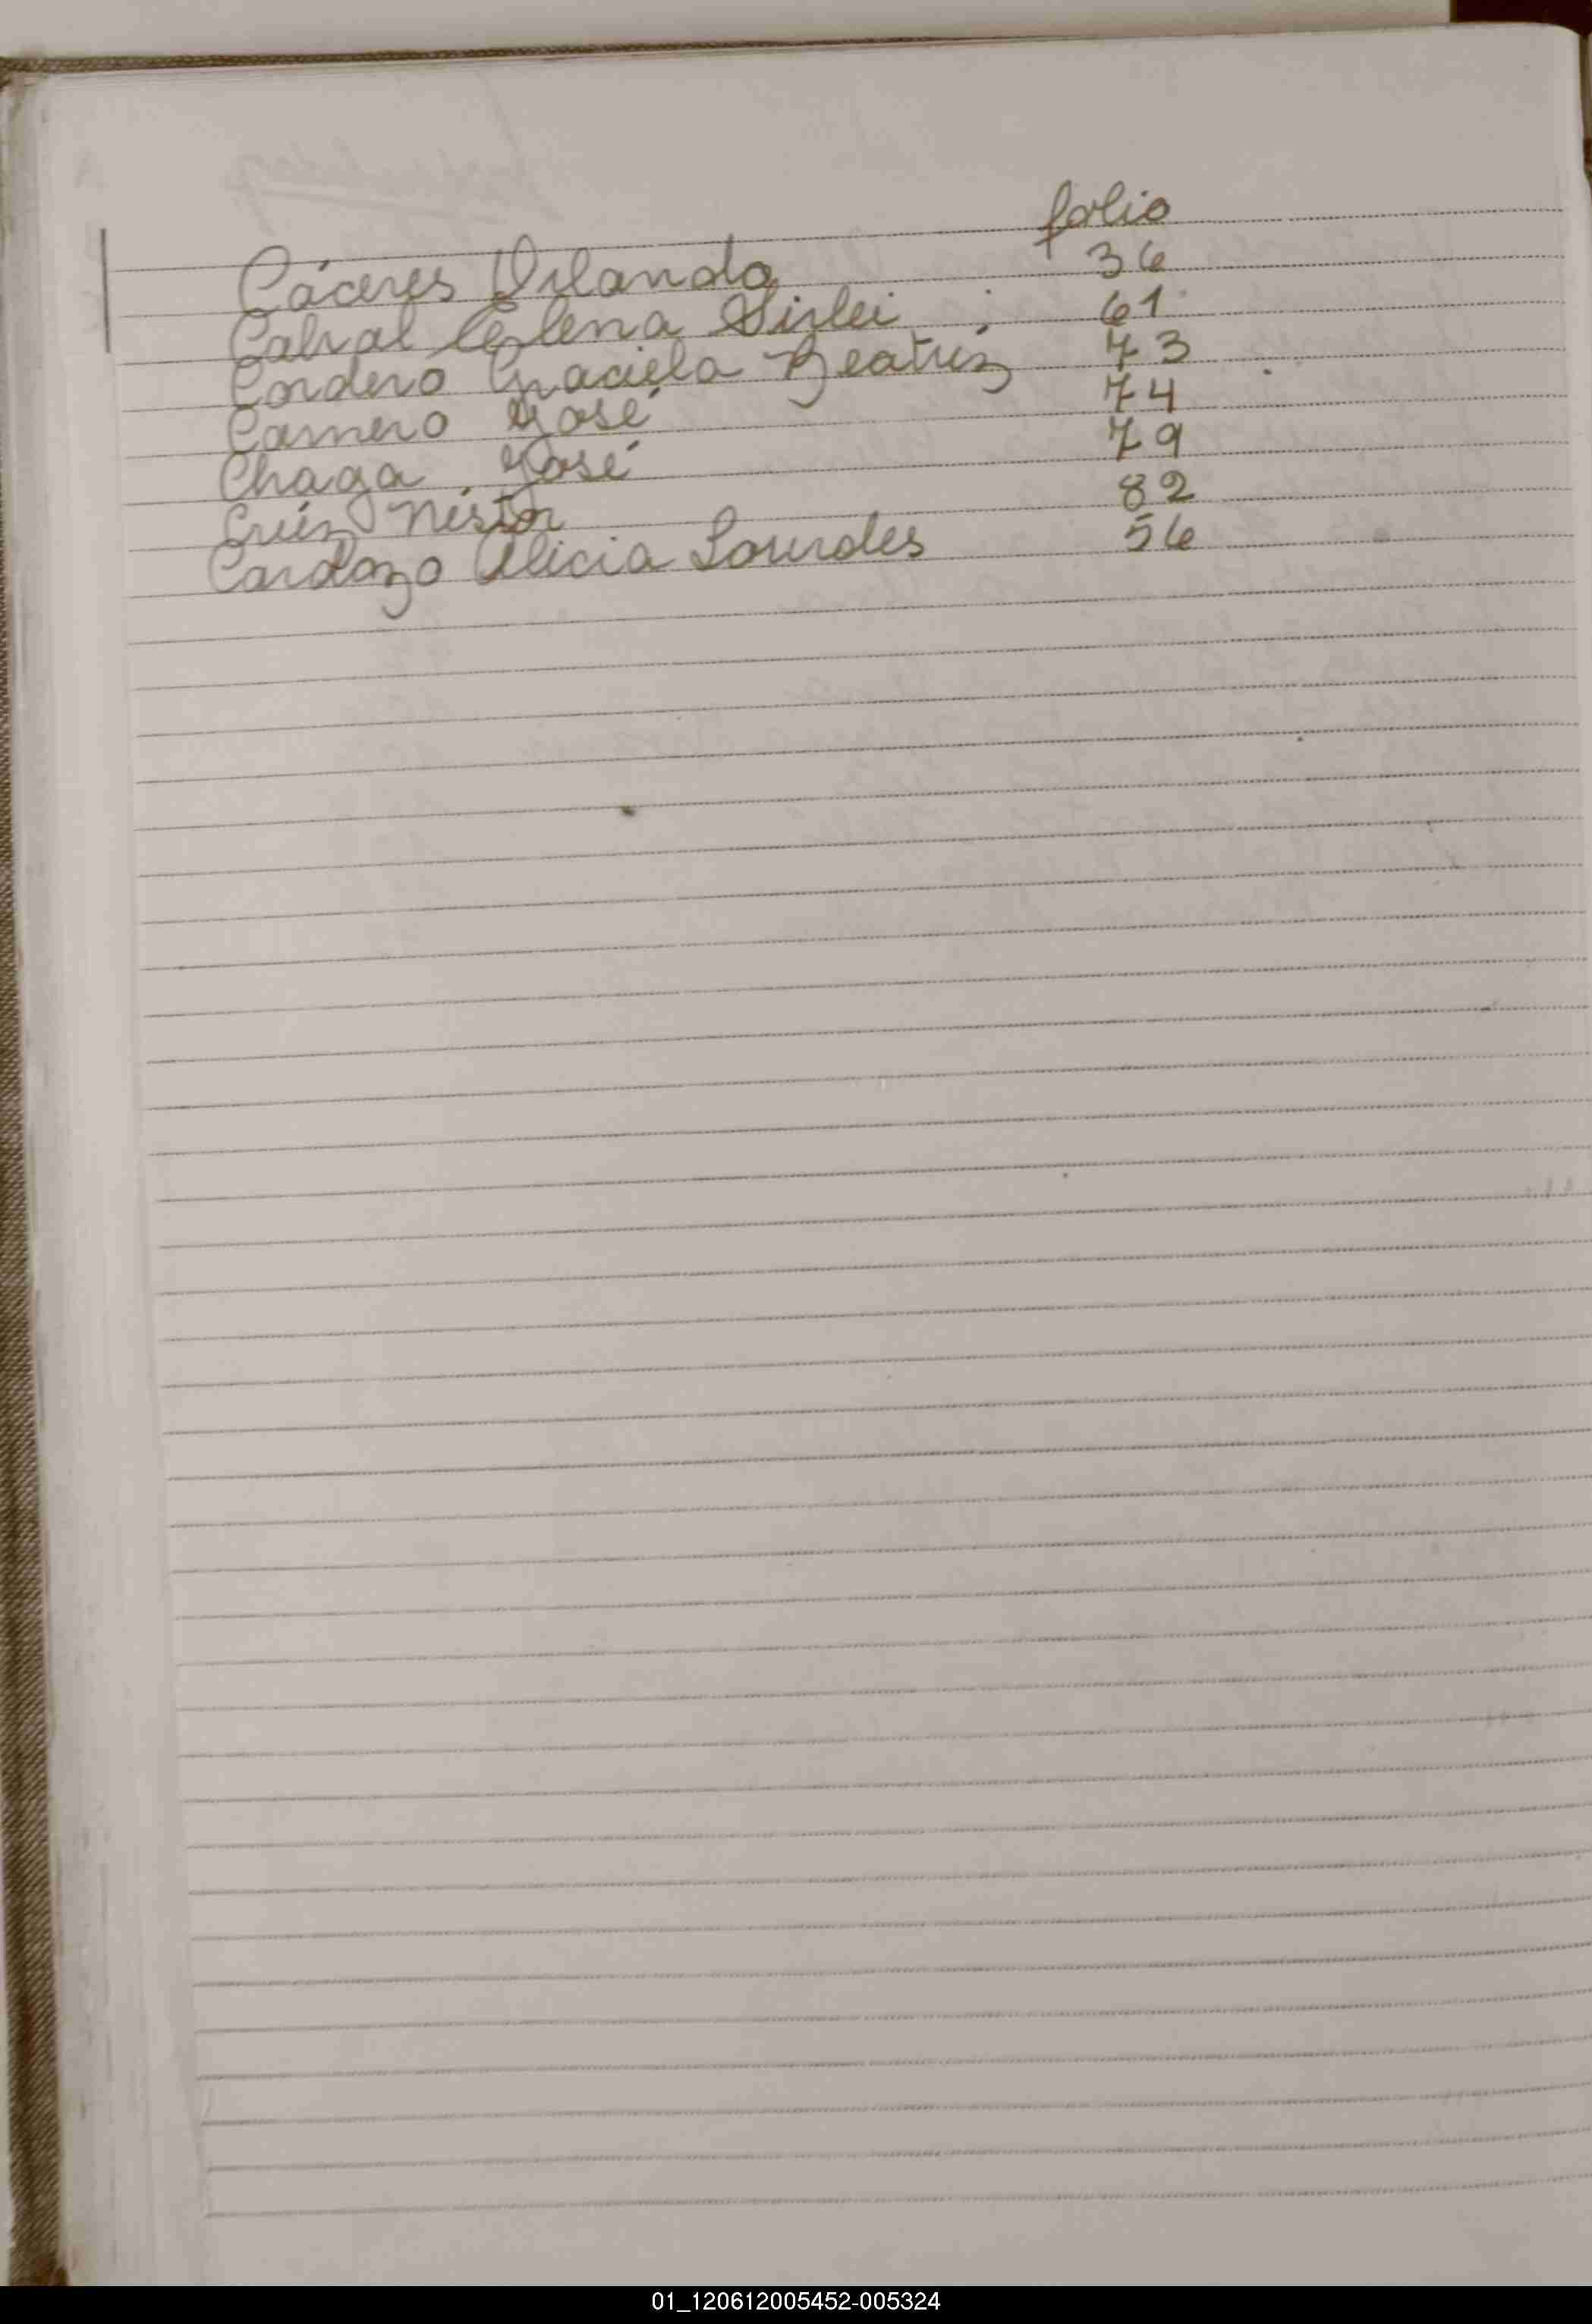 folio
Cáceres Orlando 36
Cabral Elena Sirlei 61
Cordero Graciela Beatríz 73
Carnero José 74
Chaga José 79
Crúz Néstor 82
Cardozo Alicia Lourdes 56
01_120612005452-005324